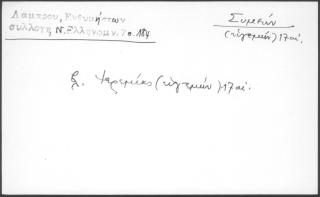 Λάμπρου, Ενθυμήσεων
συλλογή Ν.Ελληνομν.7 σ. 184
Συμεών
(ἡγεμών) 17 αἰ.
βλ. Ἱερεμίας (ἡγεμών) 17 αἰ.